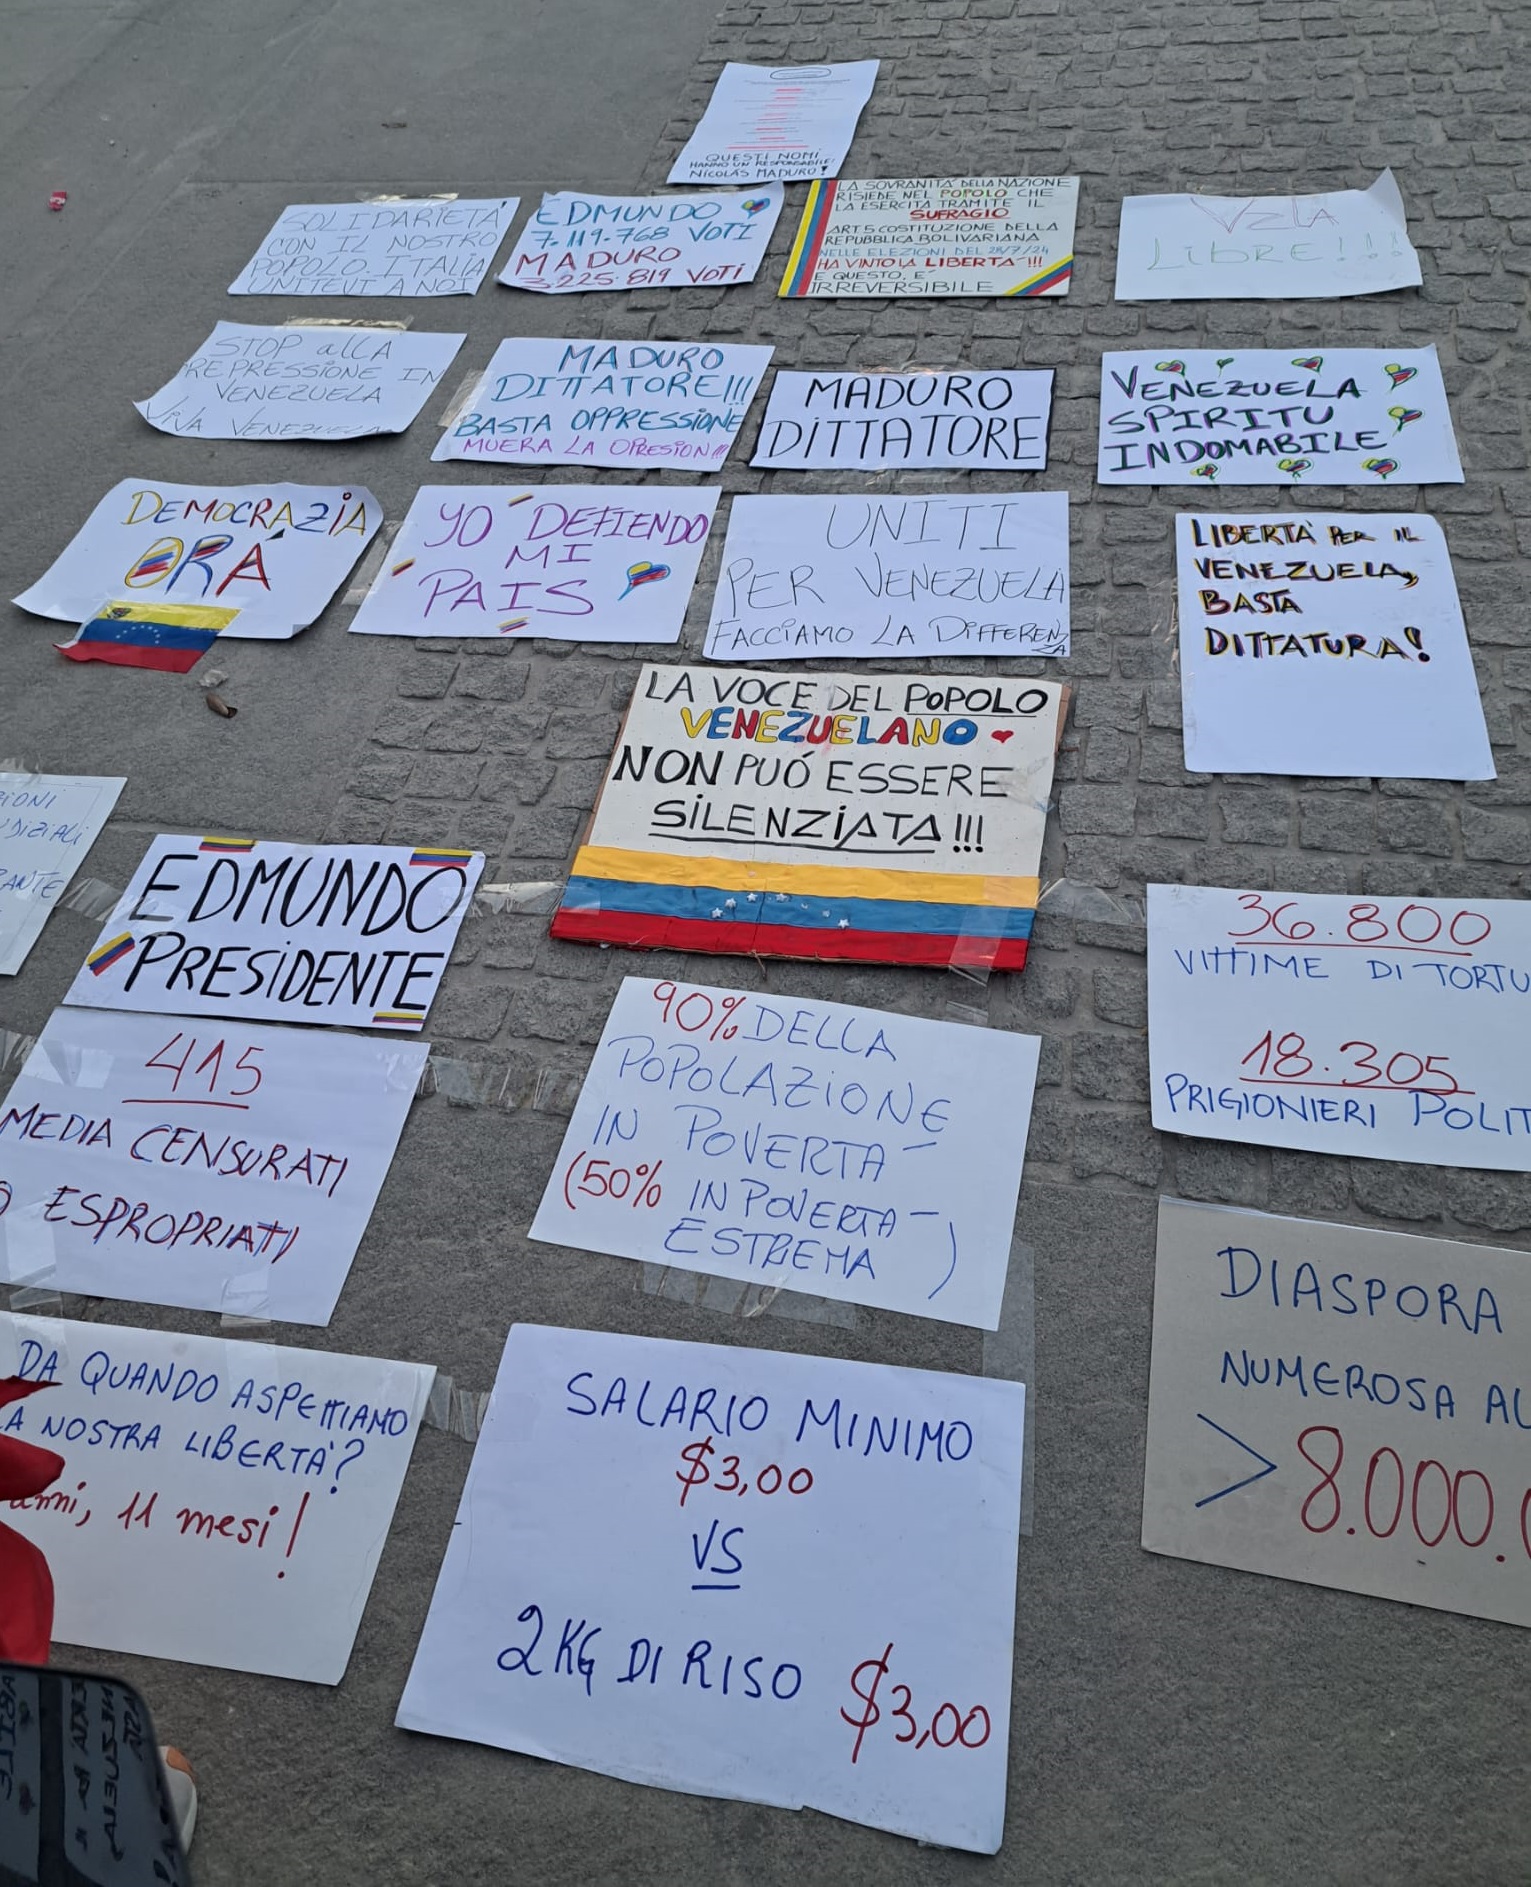 QUESTI NOMI
HANNO UN RESPONSABILE:
NICOLÁS MADURO!
SOLIDARIETA'
CON IL NOSTRO
POPOLO. ITALIA
UNITEVI A NOI
EDMUNDO
7.119.768 VOTI
MADURO
3.225.819 VOTI
LA SOVRANITÁ DELLA NAZIONE
RISIEDE NEL POPOLO CHE
LA ESERCITA TRAMITE IL
SUFRAGIO
ART 5 COSTITUZIONE DELLA
REPUBBLICA BOLIVARIANA
NELLE ELEZIONI DEL 28/7/24
HA VINTO LA LIBERTA'!!!
E QUESTO, E'
IRREVERSIBILE
VZLA
LIBRE!!!!
STOP allA
REPRESSIONE IN
VENEZUELA
VIVA VENEZUELA
MADURO
DITTATORE!!!
BASTA OPPRESSIONE
MUERA LA OPRESION!!!
MADURO
DITTATORE
VENEZUELA
SPIRITU
INDOMABILE
DEMOCRAZIA
ORÁ
YO DEFIENDO
MI
PAIS
UNITI
PER VENEZUELA
FACCIAMO LA DIFFERENZA
LIBERTA' PER IL
VENEZUELA,
BASTA
DITTATURA!
LA VOCE DEL POPOLO
VENEZUELANO
NON PUÓ ESSERE
SILENZIATA!!!
EDMUNDO
PRESIDENTE
36.800
VITTIME DI TORTU
18.305
PRIGIONIERI POLIT
415
MEDIA CENSURATI
O ESPROPRIATI
90% DELLA
POPOLAZIONE
IN POVERTA'
(50% IN POVERTA'
ESTREMA)
DIASPORA
NUMEROSA AL
> 8.000.
DA QUANDO ASPETTIAMO
LA NOSTRA LIBERTA'?
anni, 11 mesi!
SALARIO MINIMO
$3,00
VS
2KG DI RISO $3,00